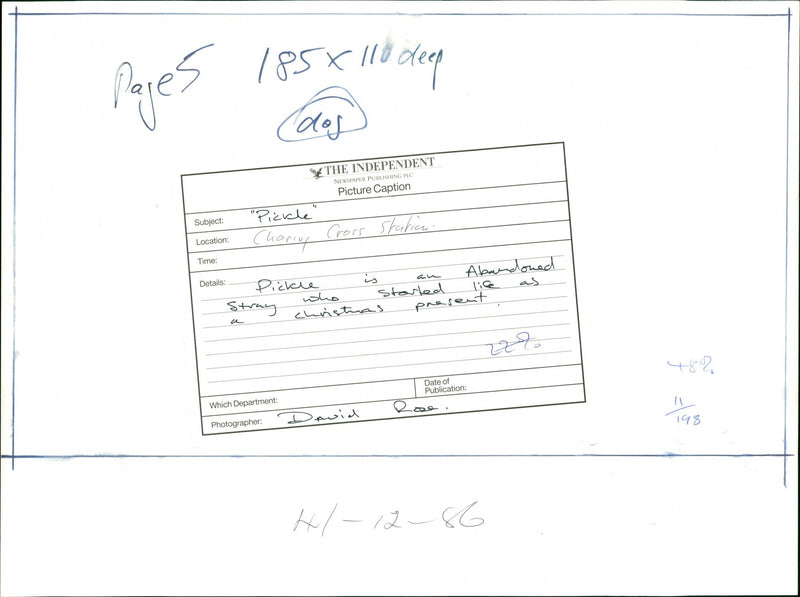 Page 5
185 x 110 deep
dog
THE INDEPENDENT
NEWSPAPER PUBLISHING PLC
Picture Caption
Subject: "Pickle"
Location: Charing Cross Station.
Time:
Details: Pickle is an Abandoned
Stray who started life as
a christmas present.
22%
Which Department:
Date of Publication:
Photographer: David Rose.
48%
11/198
4/-12-86